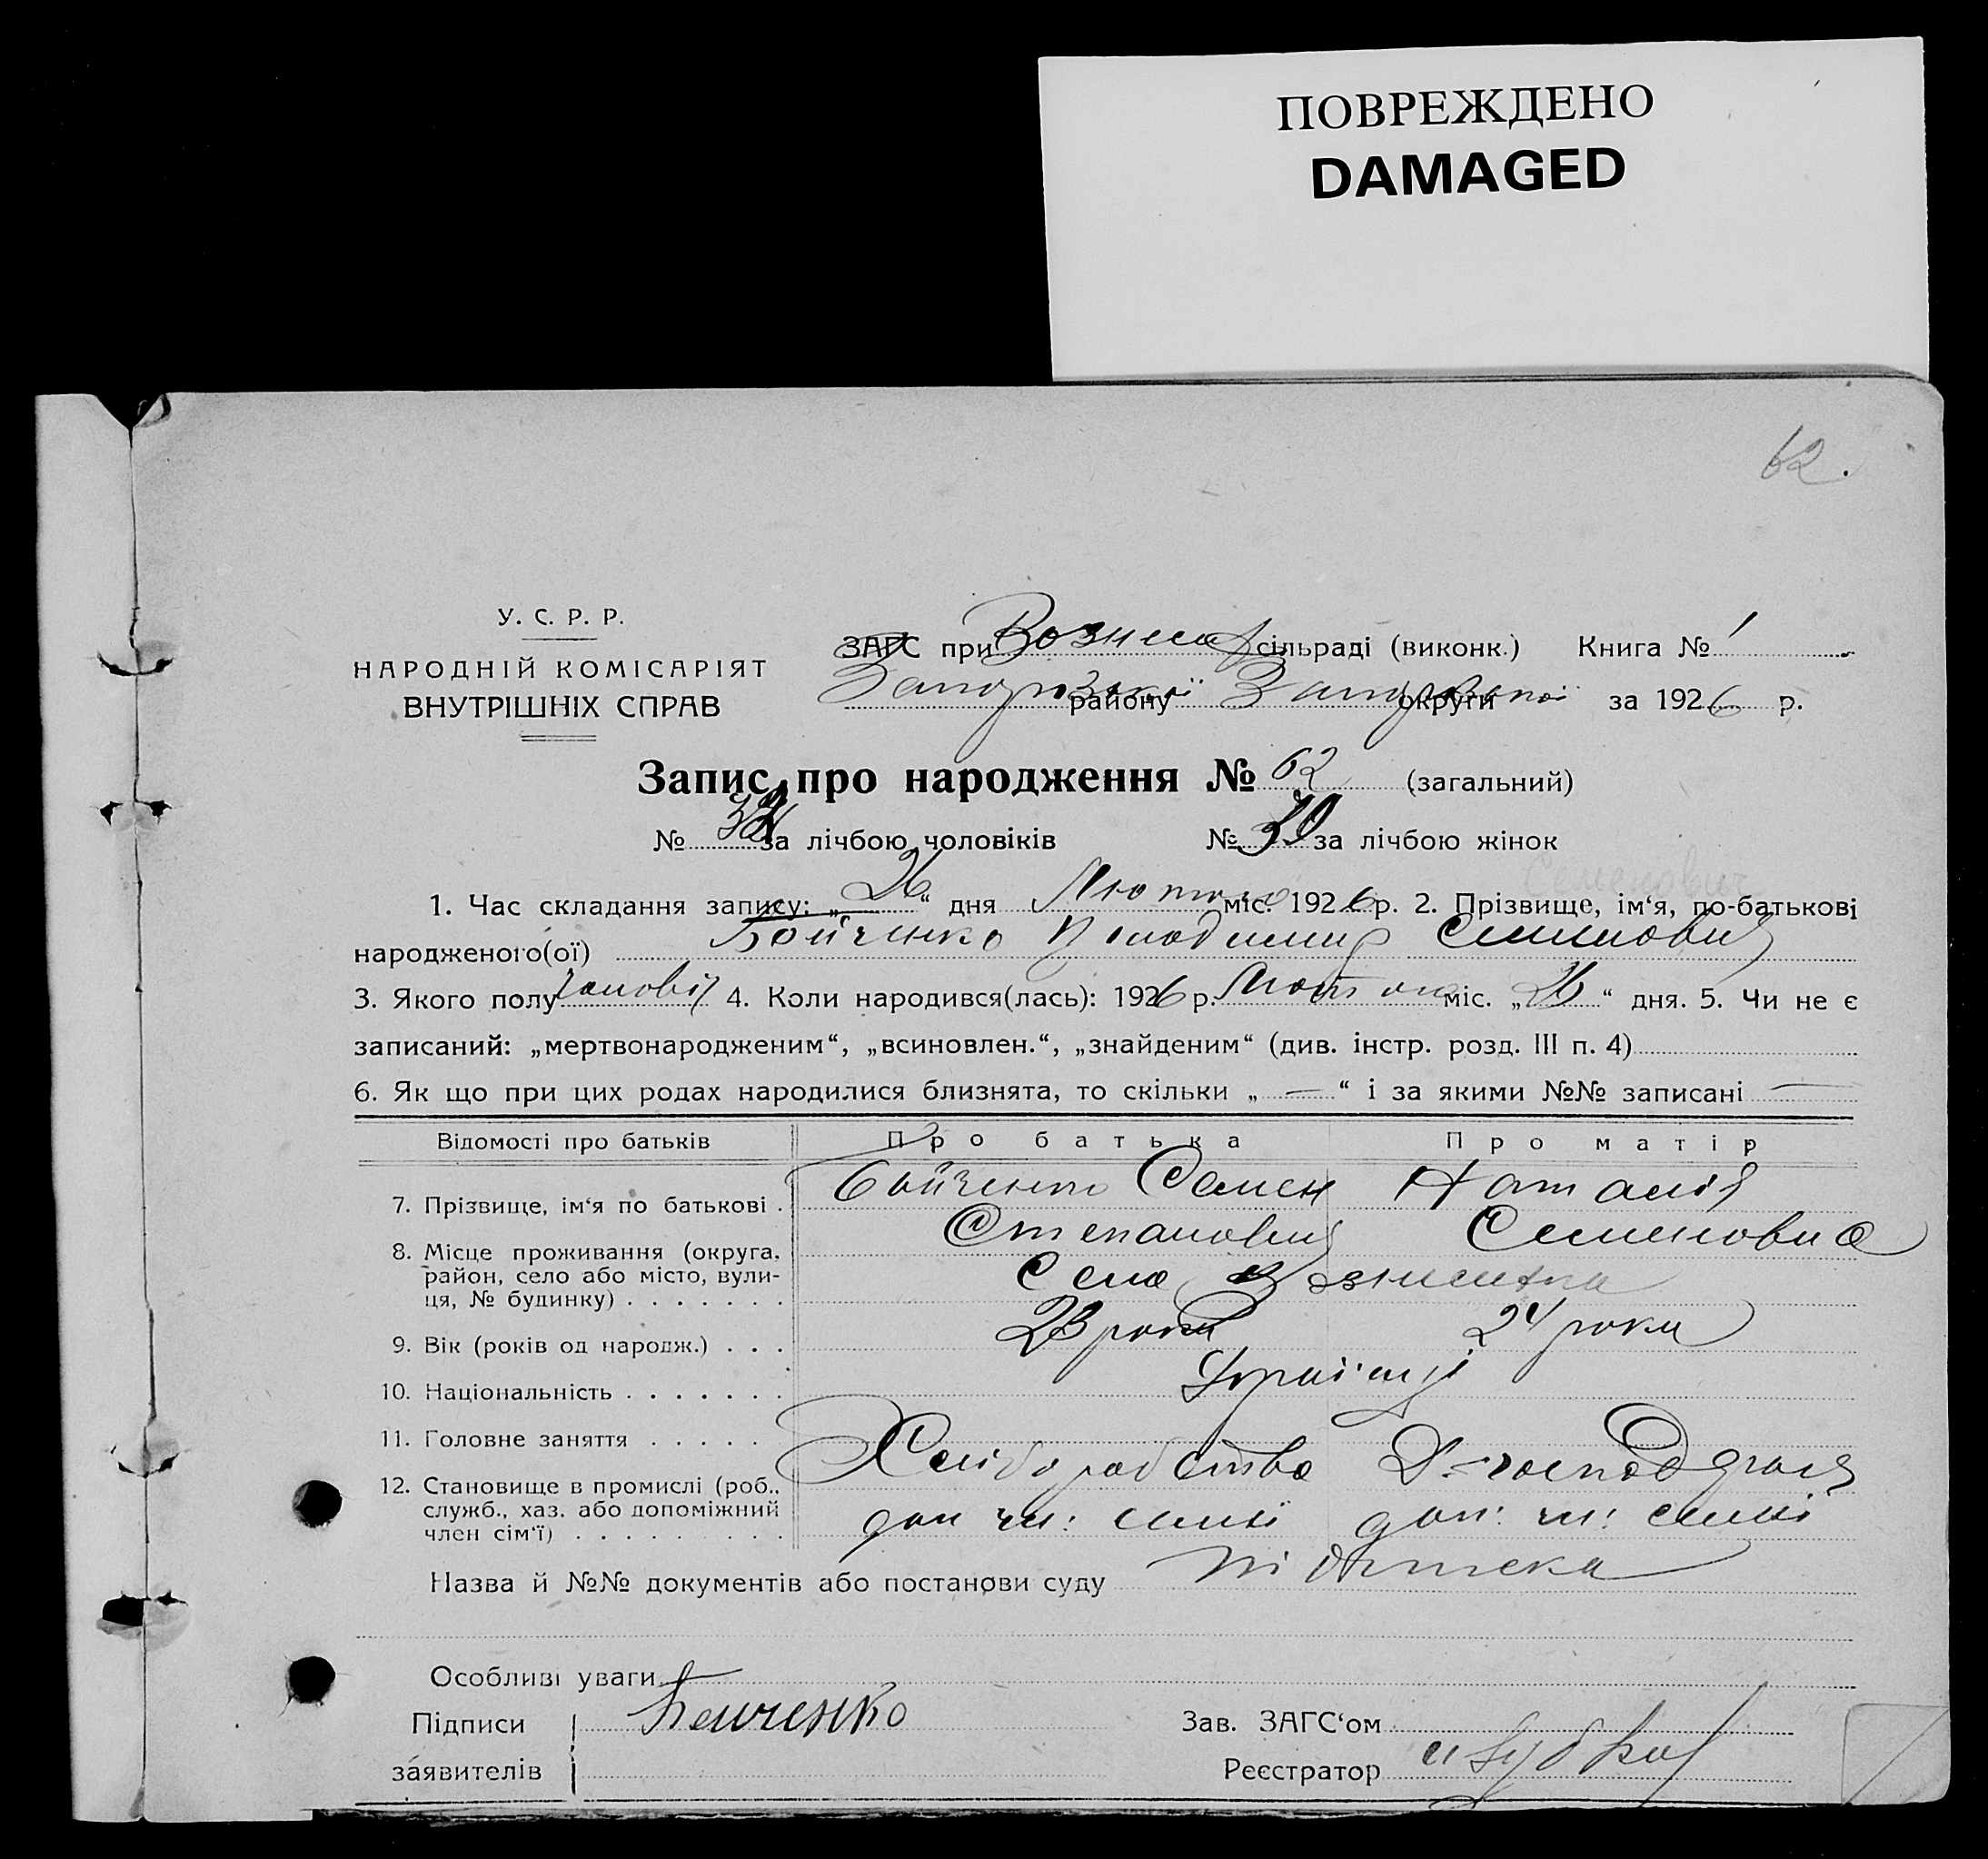 ПОВРЕЖДЕНО
DAMAGED
62.
У. С. Р. Р.
НАРОДНІЙ КОМІСАРІЯТ
ВНУТРІШНІХ СПРАВ
ЗАГС при Вознесен сільраді (виконк.) Книга № 1
Запорізької району Запорізької округи за 1926 р.
Запис про народження № 62 (загальний)
№ за лічбою чоловіків № 30 за лічбою жінок
Семенович
1. Час складання запису: „26“ дня Лютого міс. 1926 р. 2. Прізвище, ім‘я, по-батькові
народженого(ої) Бойченко Володимир Семенович
3. Якого полу чоловіч 4. Коли народився(лась): 1926 р. Лютого міс. „26“ дня. 5. Чи не є
записаний: „мертвонародженим“, „всиновлен.“, „знайденим“ (див. інстр. розд. III п. 4)
6. Як що при цих родах народилися близнята, то скільки „ — “ і за якими №№ записані —
Відомості про батьків Про батька Про матір
7. Прізвище, ім‘я по батькові . Бойченко Семен Наталія
Степанович Семеновна
8. Місце проживання (округа, район, село або місто, вулиця, № будинку) . . . . . . . Село Вознесенка
9. Вік (років од народж.) . . . 23 роки 24 роки
10. Національність . . . . . . . Українці
11. Головне заняття . . . . . Хліборобство Д-господарка
12. Становище в промислі (роб., служб., хаз. або допоміжний член сім‘ї) . . . . . . . . . доп чл: семьї доп: чл: семьї
Назва й №№ документів або постанови суду
Особливі уваги
Підписи Бойченко Зав. ЗАГС‘ом
заявителів Реєстратор